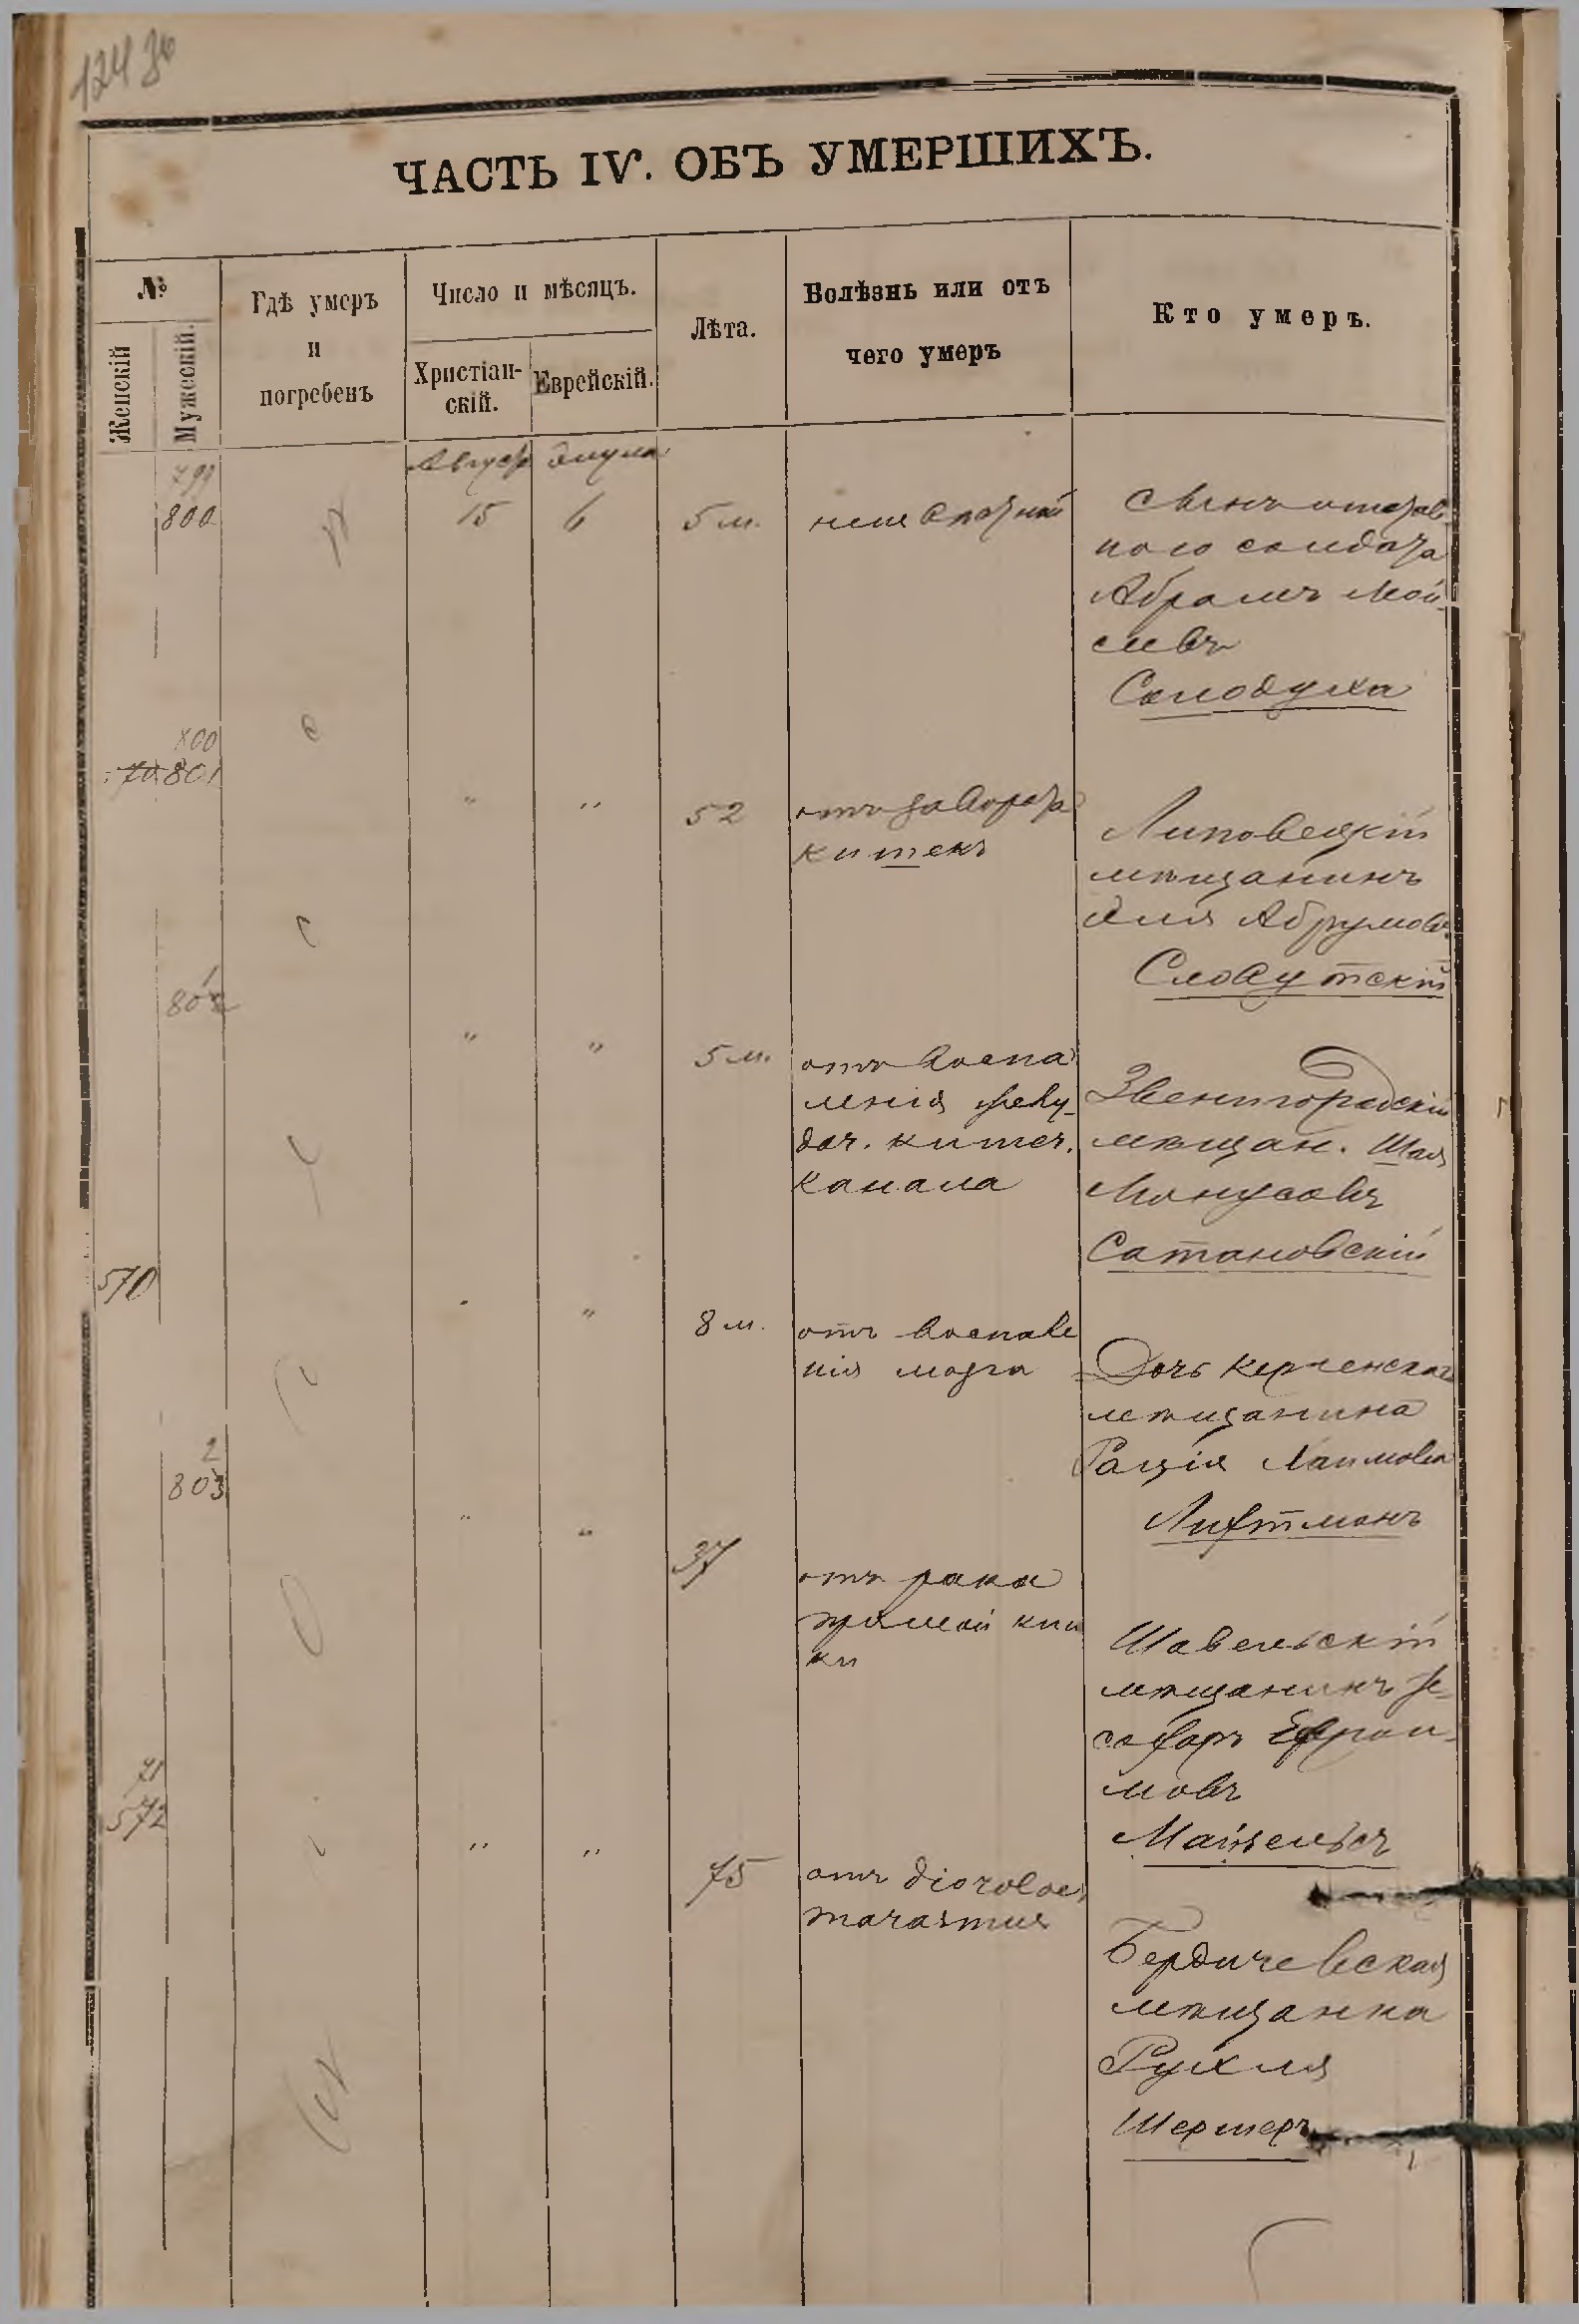 124 об
ЧАСТЬ IV. ОБЪ УМЕРШИХЪ.
№
Женскій
Мужескій.
Гдѣ умеръ
и
погребенъ
Число и мѣсяцъ.
Христіан-
скій.
Еврейскій.
Лѣта.
Болѣзнь или отъ
чего умеръ
Кто умеръ.
Август Элула
799
800 15 6 5 м.
Сынъ отстав
ного солдата
Абрамъ Мой
сеевъ
Солодуха
800
801 " " 52 отъ заворота
кишекъ
Липовецкій
мѣщанинъ
Эля Абрумовъ
Славутскій
1
802 " " 5 м. отъ воспа
ленія желу-
доч. кишеч.
канала
Звенигородскій
мѣщан. Шая
Монусовъ
Сатановскій
570 " " 8 м. отъ воспале
нія мозга
Дочь Керченскаго
мѣщанина
Хаимова
Лифтманъ
2
803 " " 37 отъ рака
прямой киш
ки
Шавельскій
мѣщанинъ
Ефрои-
мовъ
Майзельсъ
71
572 " " 75 отъ
marasmus
Бердичевская
мѣщанка
Рухля
Шерцеръ